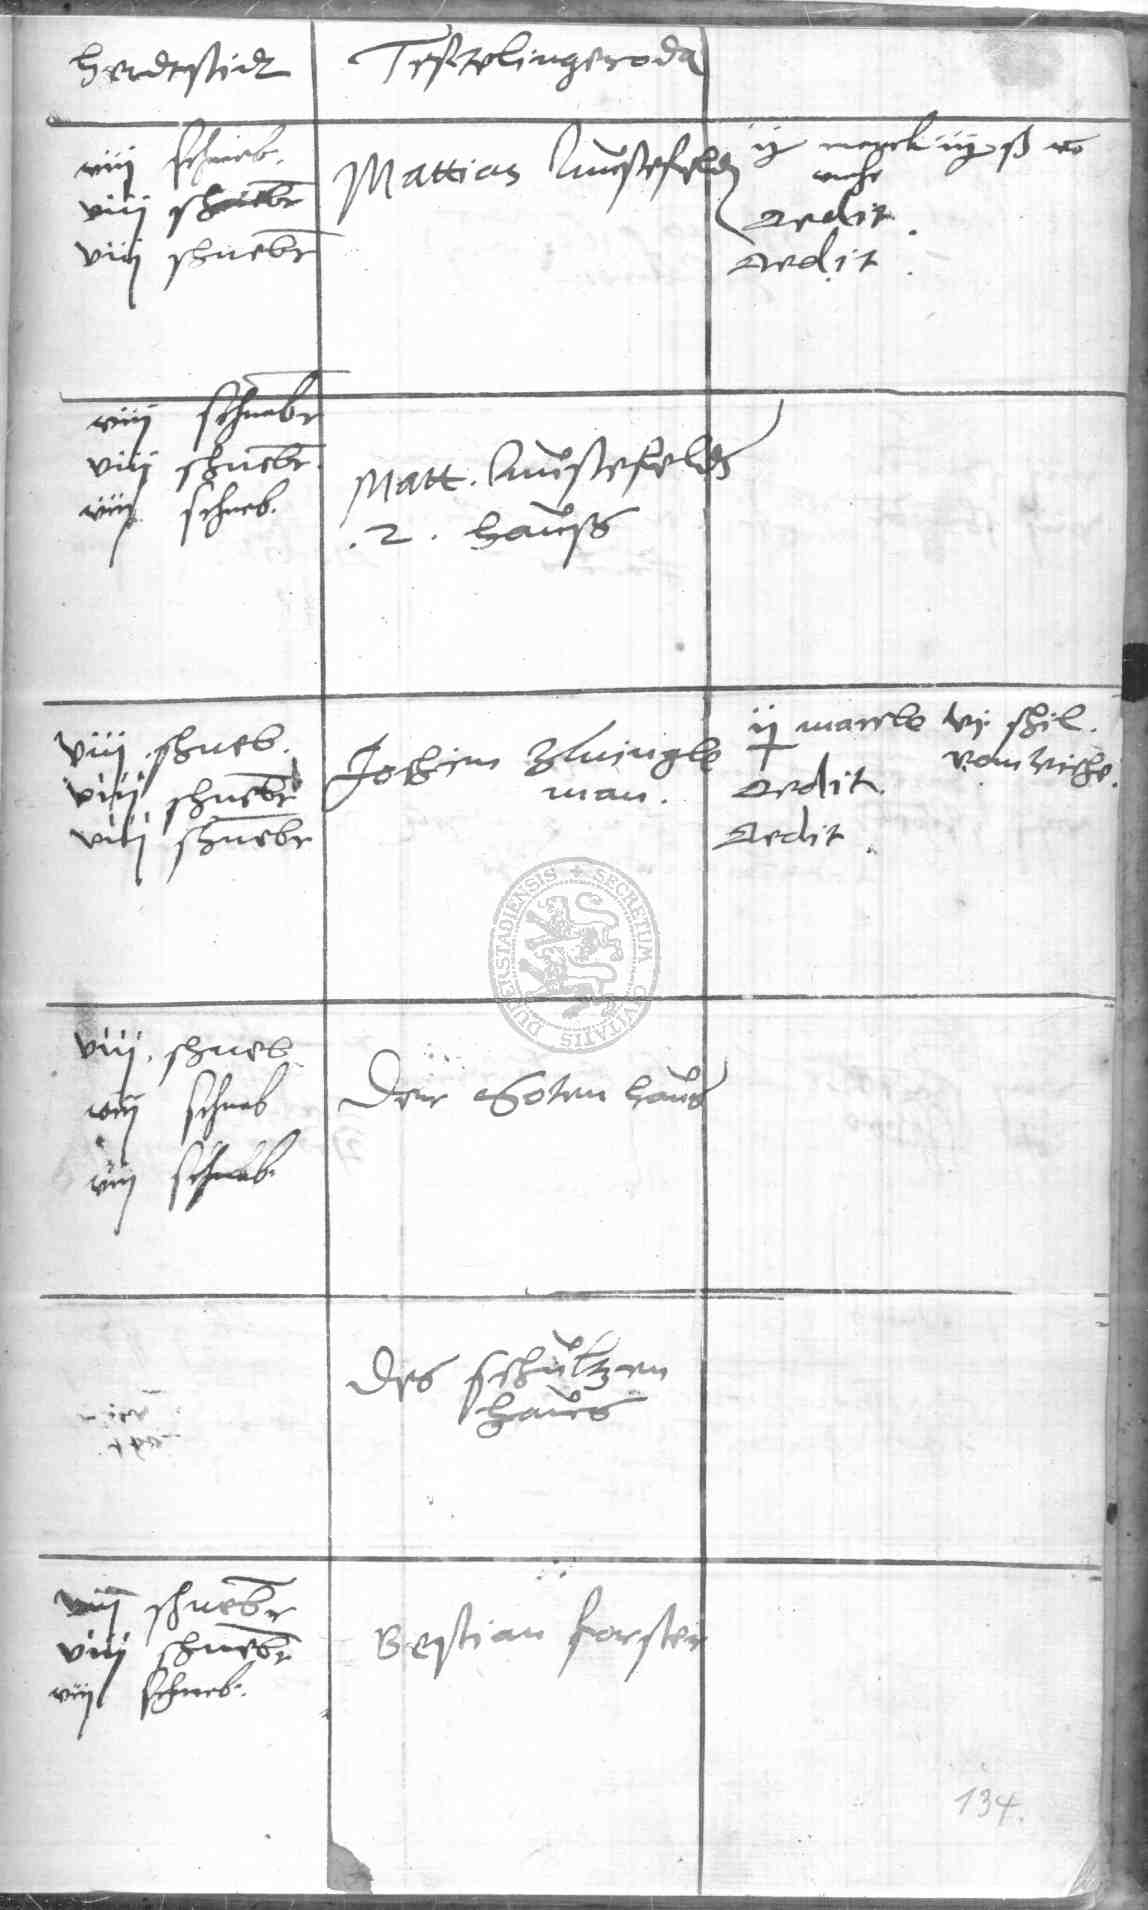 Herdtstidt Testelingeroda
viij schneb.
viij schnebr
viij schnebr
Mattias Wuestefeldt
ij marck iij ß vo
viehe
dedit.
dedit.
viij schnebr
viij schnebr.
viij schneb.
Matt. Wuestefeldts
.2. hauss
viij schneb.
viij schnebr
viij schnebr
Jochim Zwingk
man.
ij marck vj schil.
vom viehe.
dedit.
dedit.
viij. schneb
viij schneb
viij schneb.
Der Goten haus
Des schultzen
haues
viij schnebr
viij schnebr
viij schneb.
Bestian forster
134.
SECRETUM CIVITATIS DUDERSTADIENSIS